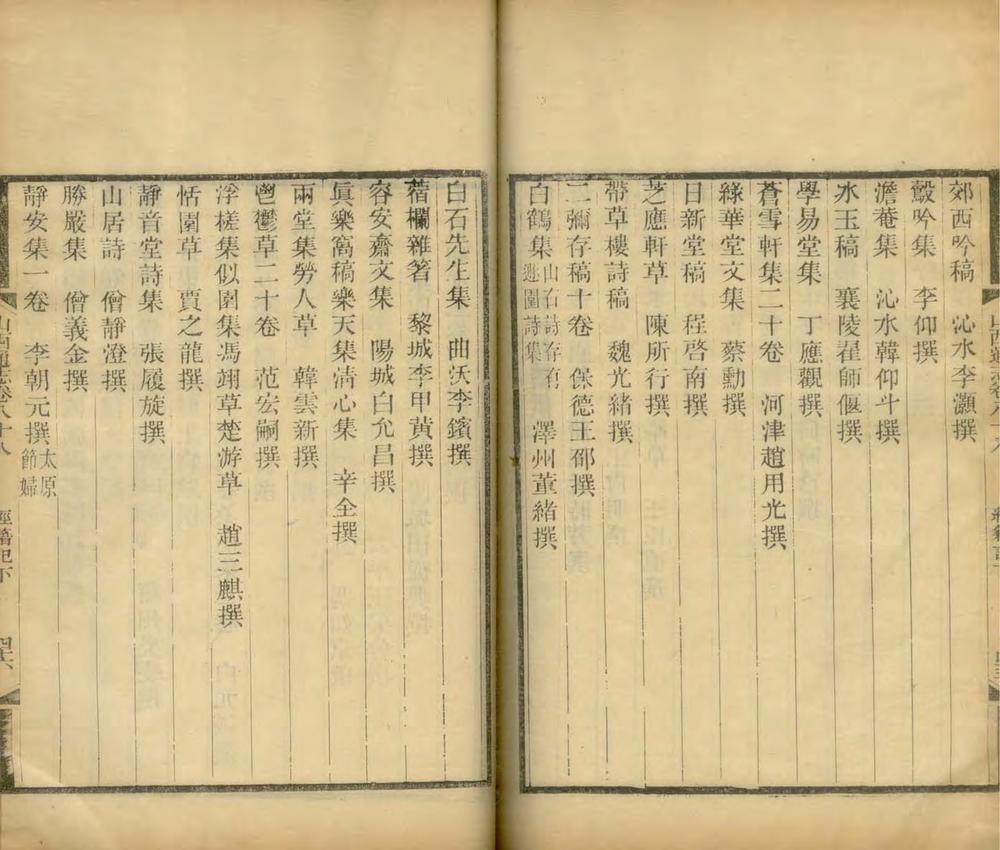 郊西吟稿　沁水李灝撰
鷇吟集　李仰撰
澹菴集　沁水韓仰斗撰
氷玉稿　襄陵翟師偃撰
學易堂集　丁應觀撰
蒼雪軒集二十卷　河津趙用光撰
綠華堂文集　蔡勳撰
日新堂稿　程啓南撰
芝應軒草　陳所行撰
帶草樓詩稿　魏光緒撰
二彌存稿十卷　保德王邵撰
白鶴集山右詩存有　澤州董緒撰
園詩集
白石先生集　曲沃李鑌撰
欄雜箸　黎城李甲黄撰
容安齋文集　陽城白允昌撰
眞樂窩稿樂天集淸心集　辛全撰
兩堂集勞人草　韓雲新撰
鬯鬱草二十卷　范宏嗣撰
浮槎集似園集馮翊草楚游草　趙三麒撰
恬園草　賈之龍撰
靜音堂詩集　張履旋撰
山居詩　僧靜澄撰
勝嚴集　僧義金撰
靜安集一卷　李朝元撰太原節婦
山西通志卷八十八　經籍記下